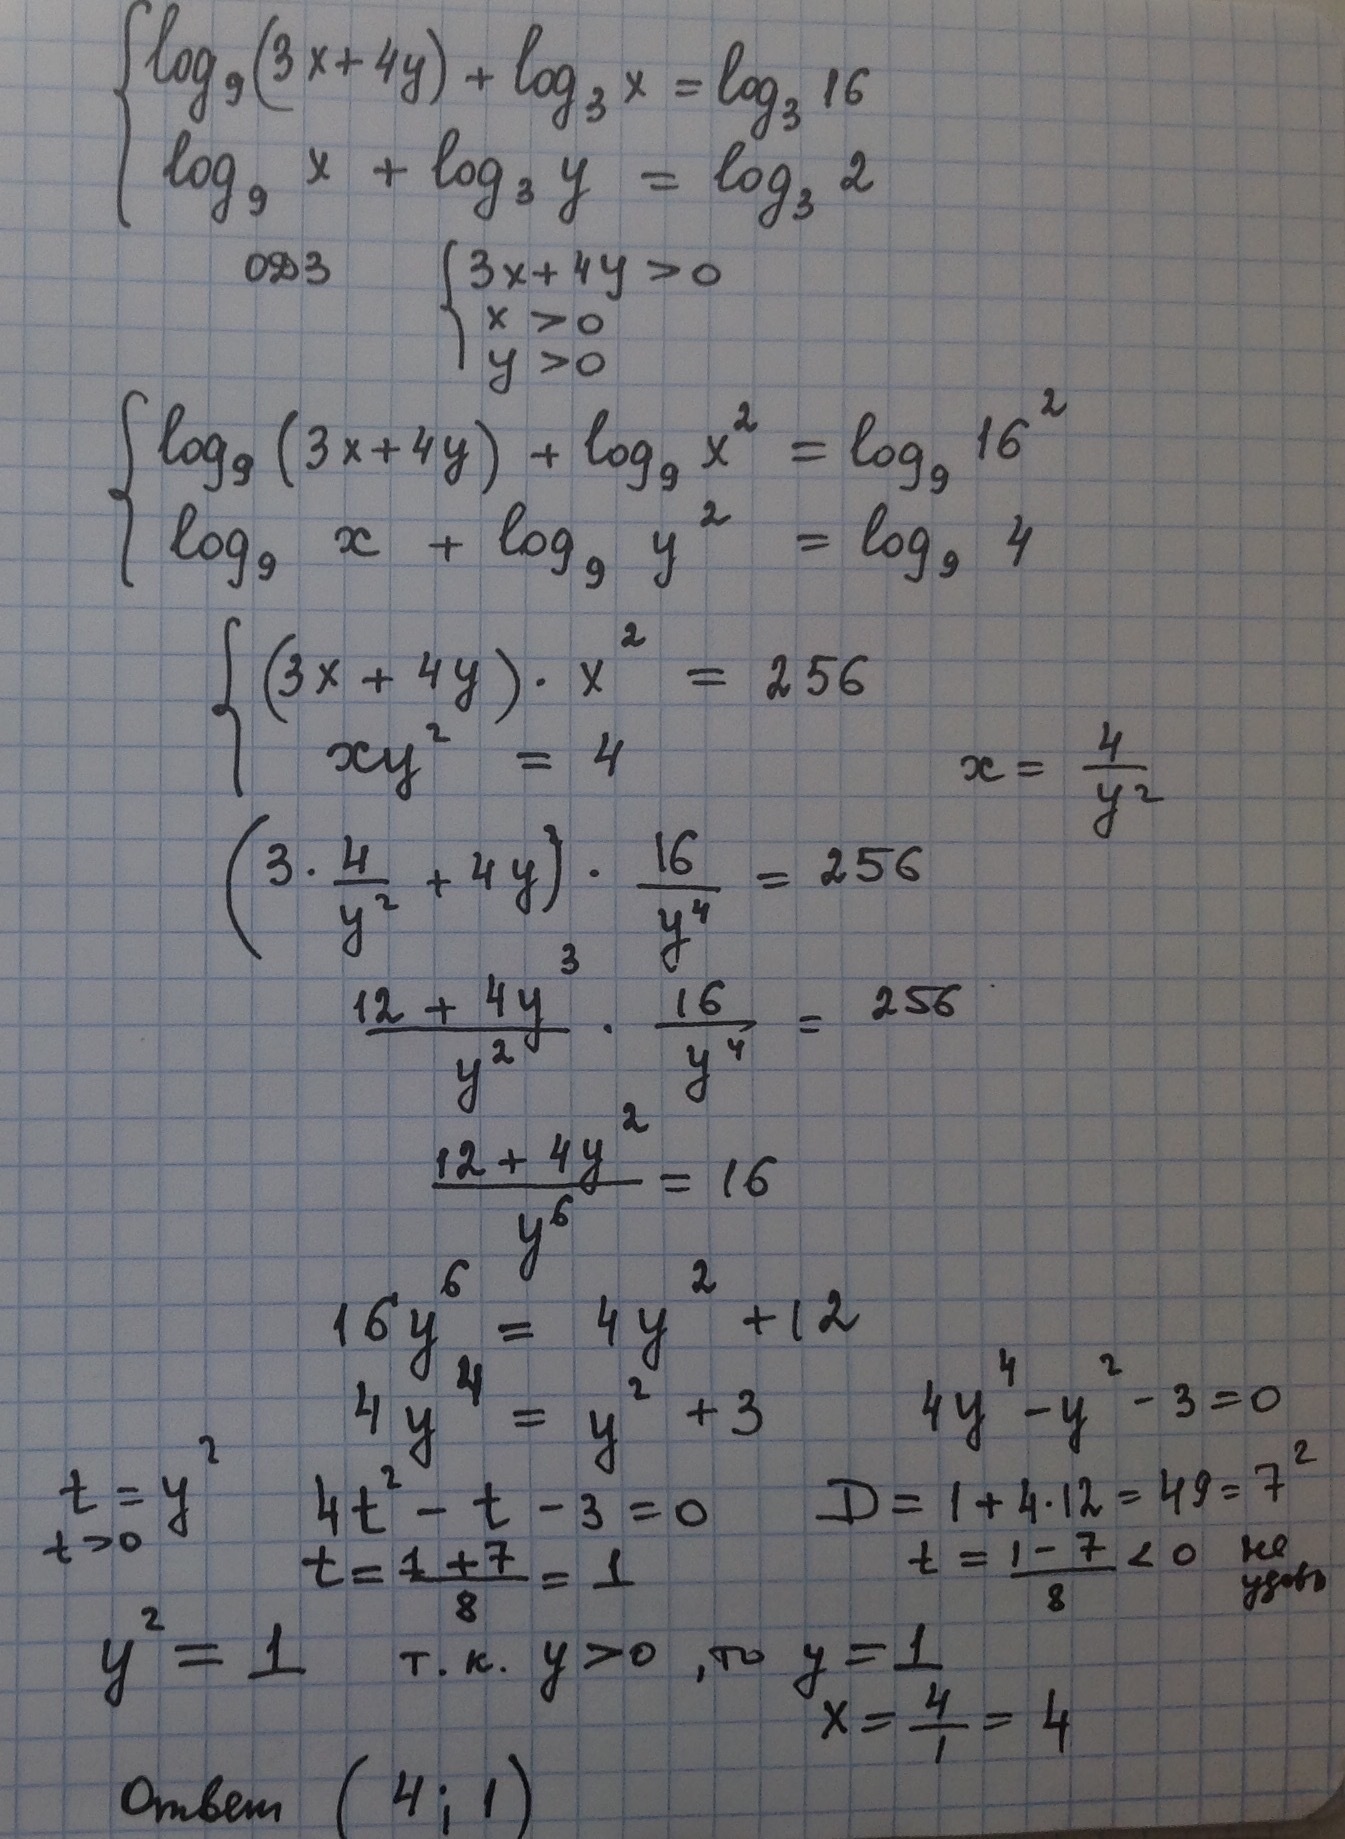 log₉(3x+4y) + log₃ x = log₃ 16
log₉ x + log₃ y = log₃ 2
ОДЗ { 3x+4y > 0
x > 0
y > 0
log₉ (3x+4y) + log₉ x² = log₉ 16²
log₉ x + log₉ y² = log₉ 4
(3x + 4y) · x² = 256
xy² = 4 x = 4/y²
(3 · 4/y² + 4y) · 16/y⁴ = 256
(12 + 4y³)/y² · 16/y⁴ = 256
(12 + 4y²)/y⁶ = 16
16y⁶ = 4y² + 12
4y⁴ = y² + 3 4y⁴ - y² - 3 = 0
t = y² 4t² - t - 3 = 0 D = 1 + 4·12 = 49 = 7²
t > 0 t = (1+7)/8 = 1 t = (1-7)/8 < 0 не удовл
y² = 1 т.к. y > 0, то y = 1
x = 4/1 = 4
Ответ (4; 1)